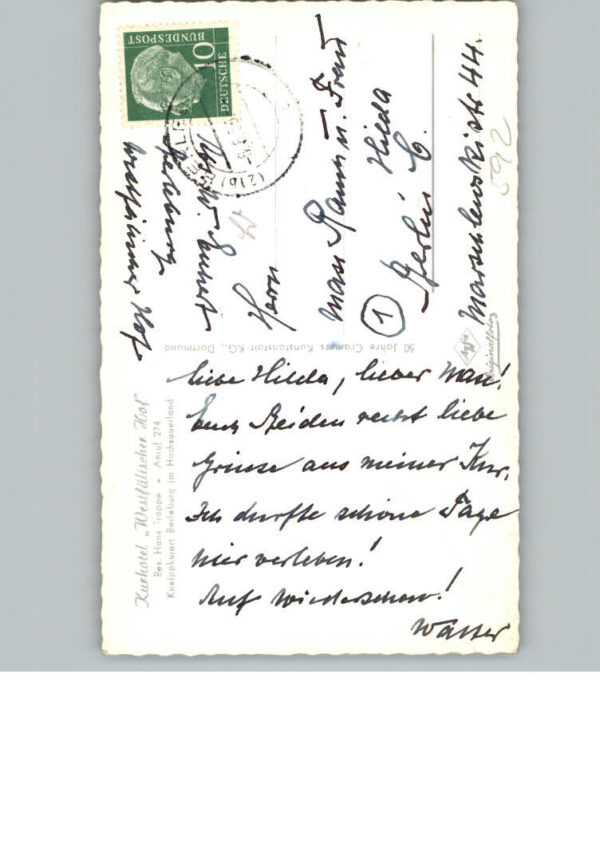 Kurhotel „Westfälischer Hof"
Bes. Hans Trappe • Anruf 274
Kneippkurort Berleburg im Hochsauerland
50 Jahre Cramers Kunstanstalt KG., Dortmund
Originalfoto
DEUTSCHE
BUNDESPOST
10
(21b) BERLEBURG
Berleburg
Westfälischer Hof
Herrn
Max u. Frau
Hilda
① Berlin C.
Marchlewskistr. 44.
592
Liebe Hilda, lieber Max!
Euch Beiden recht liebe
Grüsse aus meiner Kur.
Ich durfte schöne Tage
hier verleben!
Auf Wiedersehen!